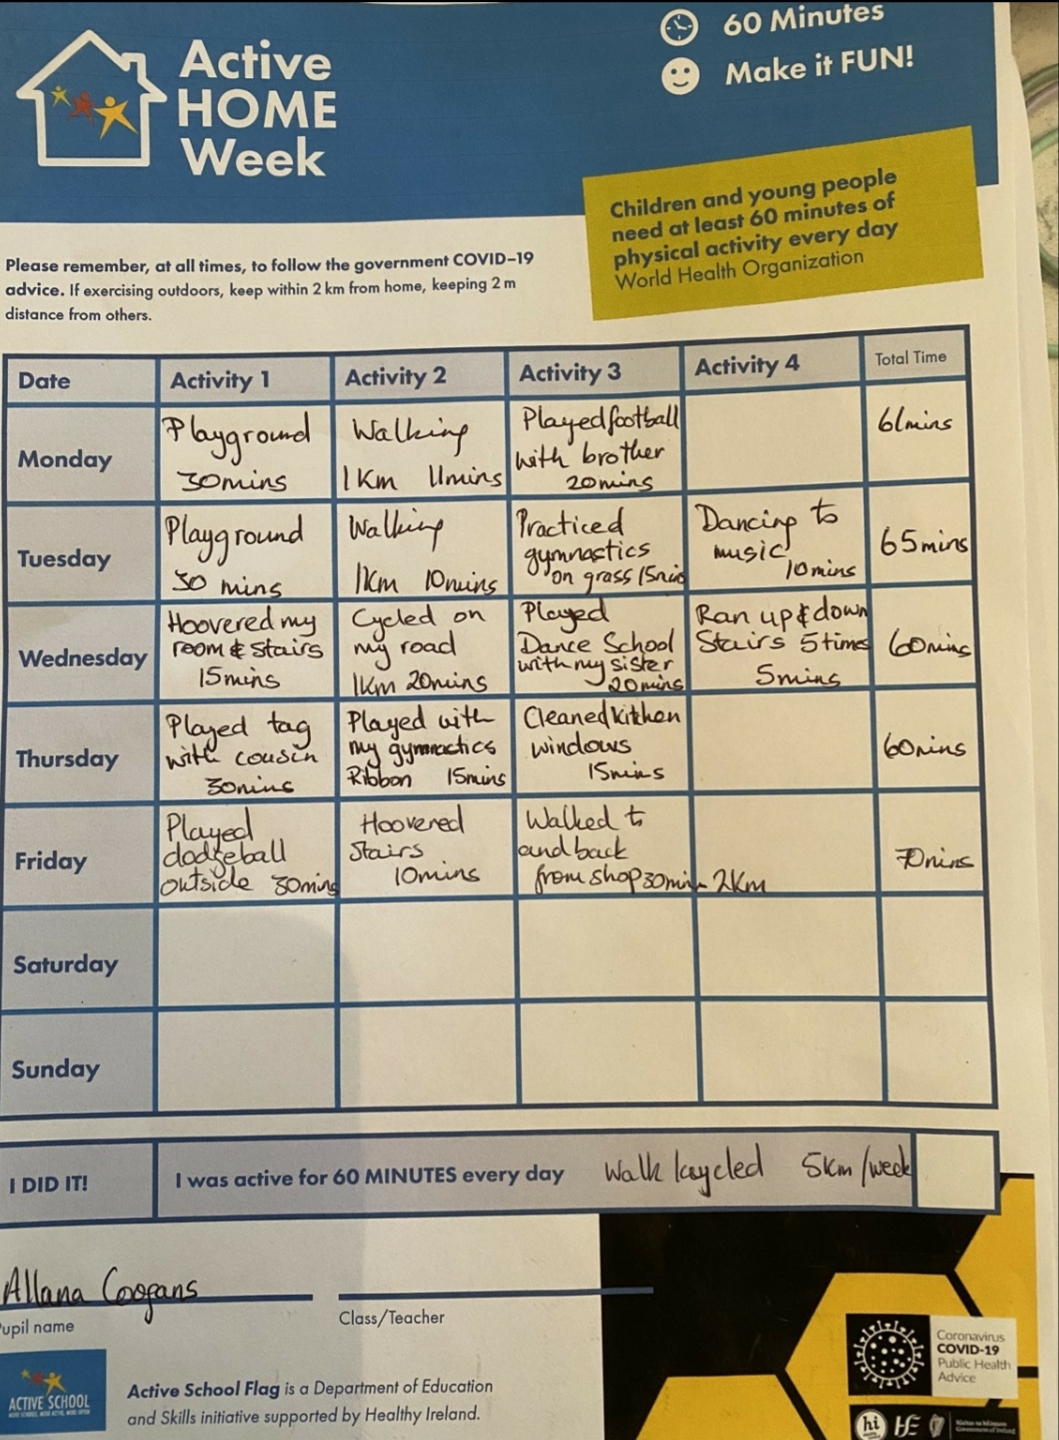 60 Minutes
Make it FUN!
Active
HOME
Week
Children and young people
need at least 60 minutes of
physical activity every day
World Health Organization
Please remember, at all times, to follow the government COVID–19
advice. If exercising outdoors, keep within 2 km from home, keeping 2 m
distance from others.
Date
Activity 1
Activity 2
Activity 3
Activity 4
Total Time
Monday
Playground
30mins
Walking
1Km 11mins
Played football
with brother
20mins
61mins
Tuesday
Playground
30 mins
Walking
1km 10mins
Practiced
gymnastics
on grass 15mins
Dancing to
music
10mins
65mins
Wednesday
Hoovered my
room & stairs
15mins
Cycled on
my road
1Km 20mins
Played
Dance School
with my sister
20mins
Ran up & down
Stairs 5 times
5mins
60mins
Thursday
Played tag
with cousin
30mins
Played with
my gymnactics
Ribbon 15mins
Cleaned kitchen
windows
15mins
60mins
Friday
Played
dodgeball
outside 30mins
Hoovered
Stairs
10mins
Walked to
and back
from shop 30min - 2Km
70mins
Saturday
Sunday
I DID IT!
I was active for 60 MINUTES every day
Walk/cycled 5km/week
Allana Coogans
Pupil name
Class/Teacher
ACTIVE SCHOOL
Active School Flag is a Department of Education
and Skills initiative supported by Healthy Ireland.
Coronavirus
COVID-19
Public Health
Advice
hi